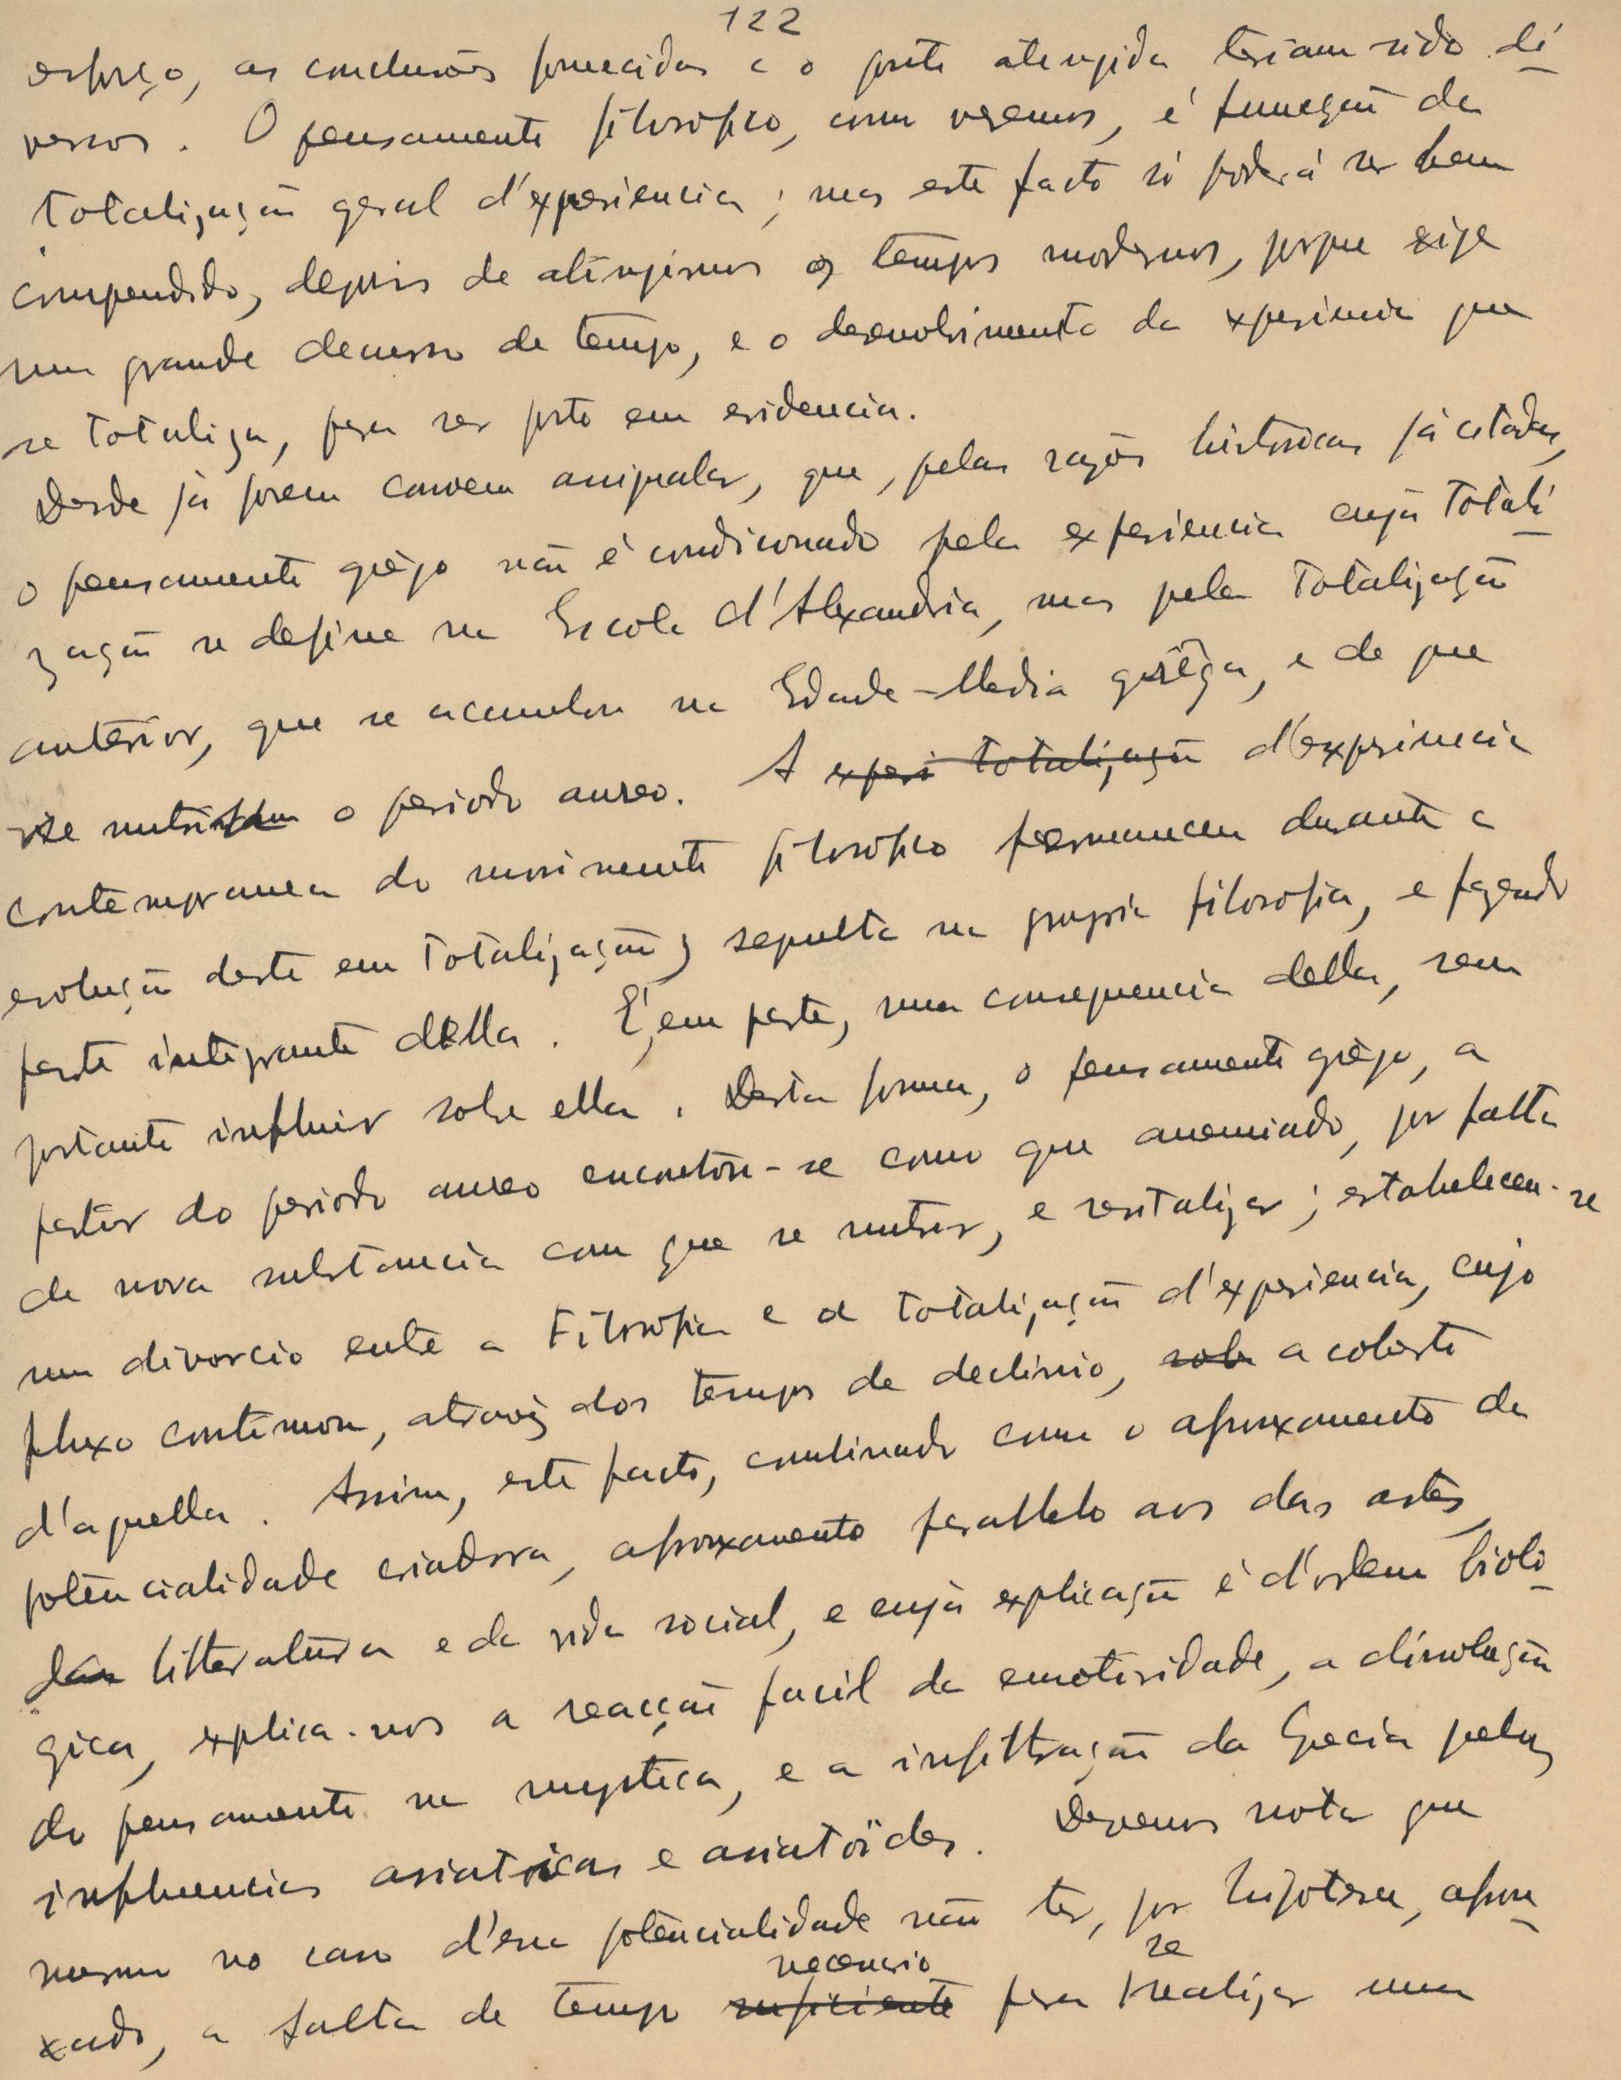 122
esforço, as conclusões fornecidas e o ponto atingido teriam sido di
versos. O pensamento filosofico, como veremos, é funcção da
totalização geral d'experiencia; mas este facto só poderá ser bem
compendido, depois de atingirmos os tempos modernos, porque exige
um grande decurso de tempo, e o desenvolvimento da experiencia que
se totaliza, para ser posto em evidencia.
Desde já porem convem assignalar, que, pelas razões historicas já citadas,
o pensamento grêgo não é condicionado pela experiencia cuja totali
zação se define na Escola d'Alexandria, mas pela totalização
anterior, que se acumulou na Edade-Media grêga, e de que
se nutriu o periodo aureo. A experi totalização d'experiencia
contemporanea do movimento filosofico permaneceu durante a
evolução deste em totalização, sepulta na propria filosofia, e fazendo
parte integrante della. É, em parte, uma consequencia della, sem
portanto influir sobre ella. Desta forma, o pensamento grêgo, a
partir do periodo aureo encontrou-se como que anemiado, por falta
de nova substancia com que se nutrir, e revitalizar; estabeleceu-se
um divorcio entre a Filosofia e a totalização d'experiencia, cujo
fluxo continuou, através dos tempos de declinio, sob a coberto
d'aquella. Assim, este facto, combinado com o afrouxamento da
potencialidade criadora, afrouxamento parallelo aos das artes,
das litteratura e da vida social, e cuja explicação é d'ordem bioló
gica, explica-nos a reacção facil da emotividade, a dissolução
do pensamento na mystica, e a infiltração da Grecia pelas
influencias asiaticas e asiatoïdes. Devemos notar que
mesmo no caso d'essa potencialidade não ter, por hipotese, afrou
xado, a falta de tempo suficiente necessario para se realizar uma